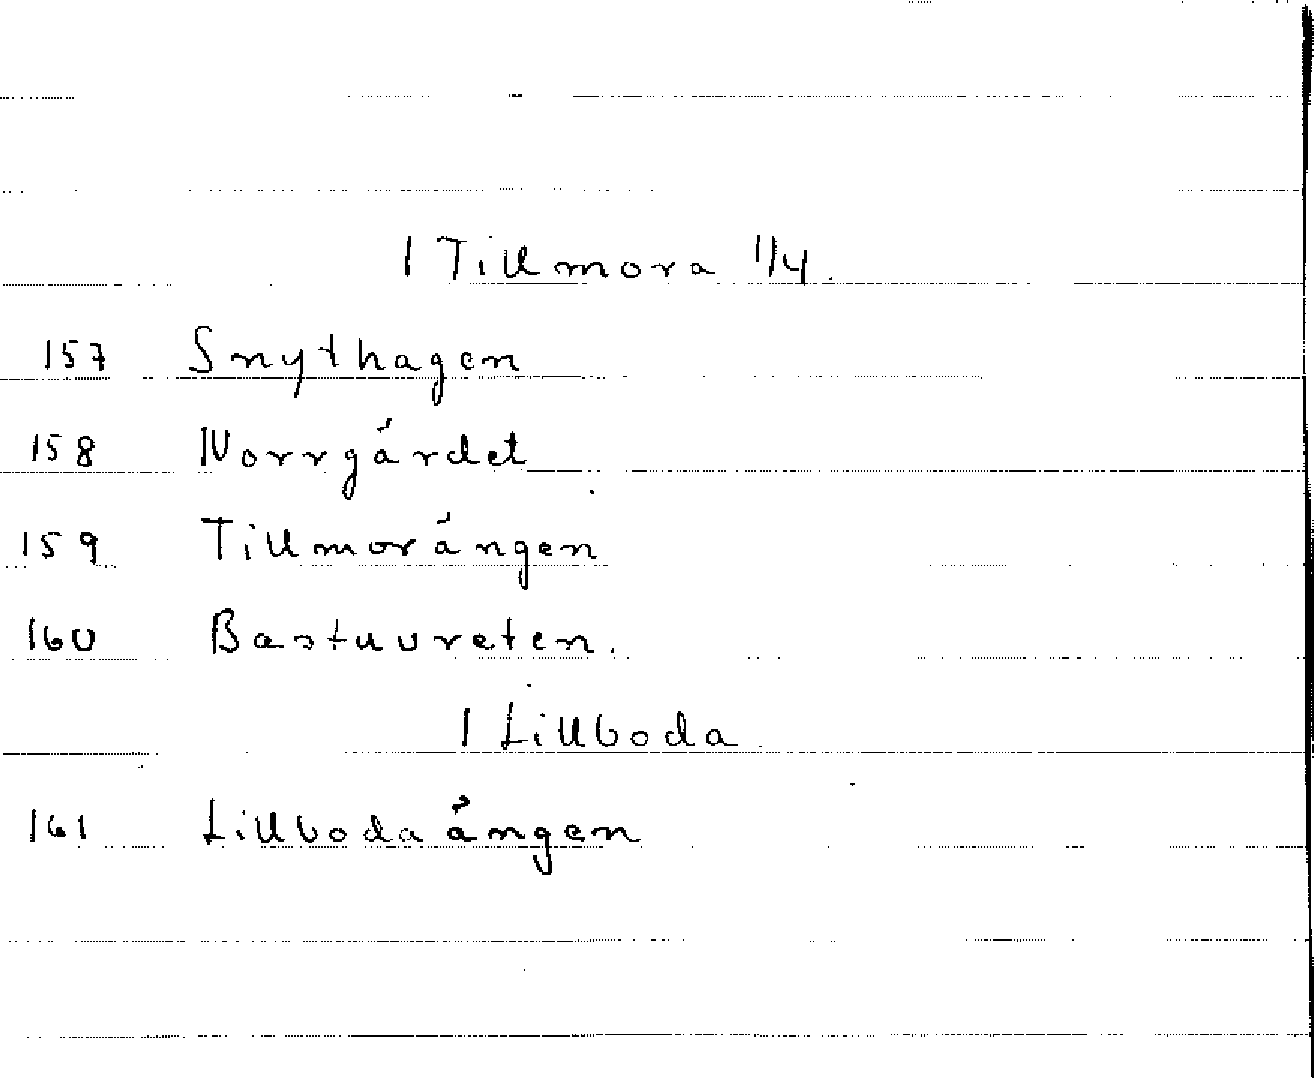 1 Tillmora 1/4.
157 Snythagen
158 Norrgärdet
159 Tillmorängen
160 Bastuvreten.
1 Lillboda
161 Lillbodaängen